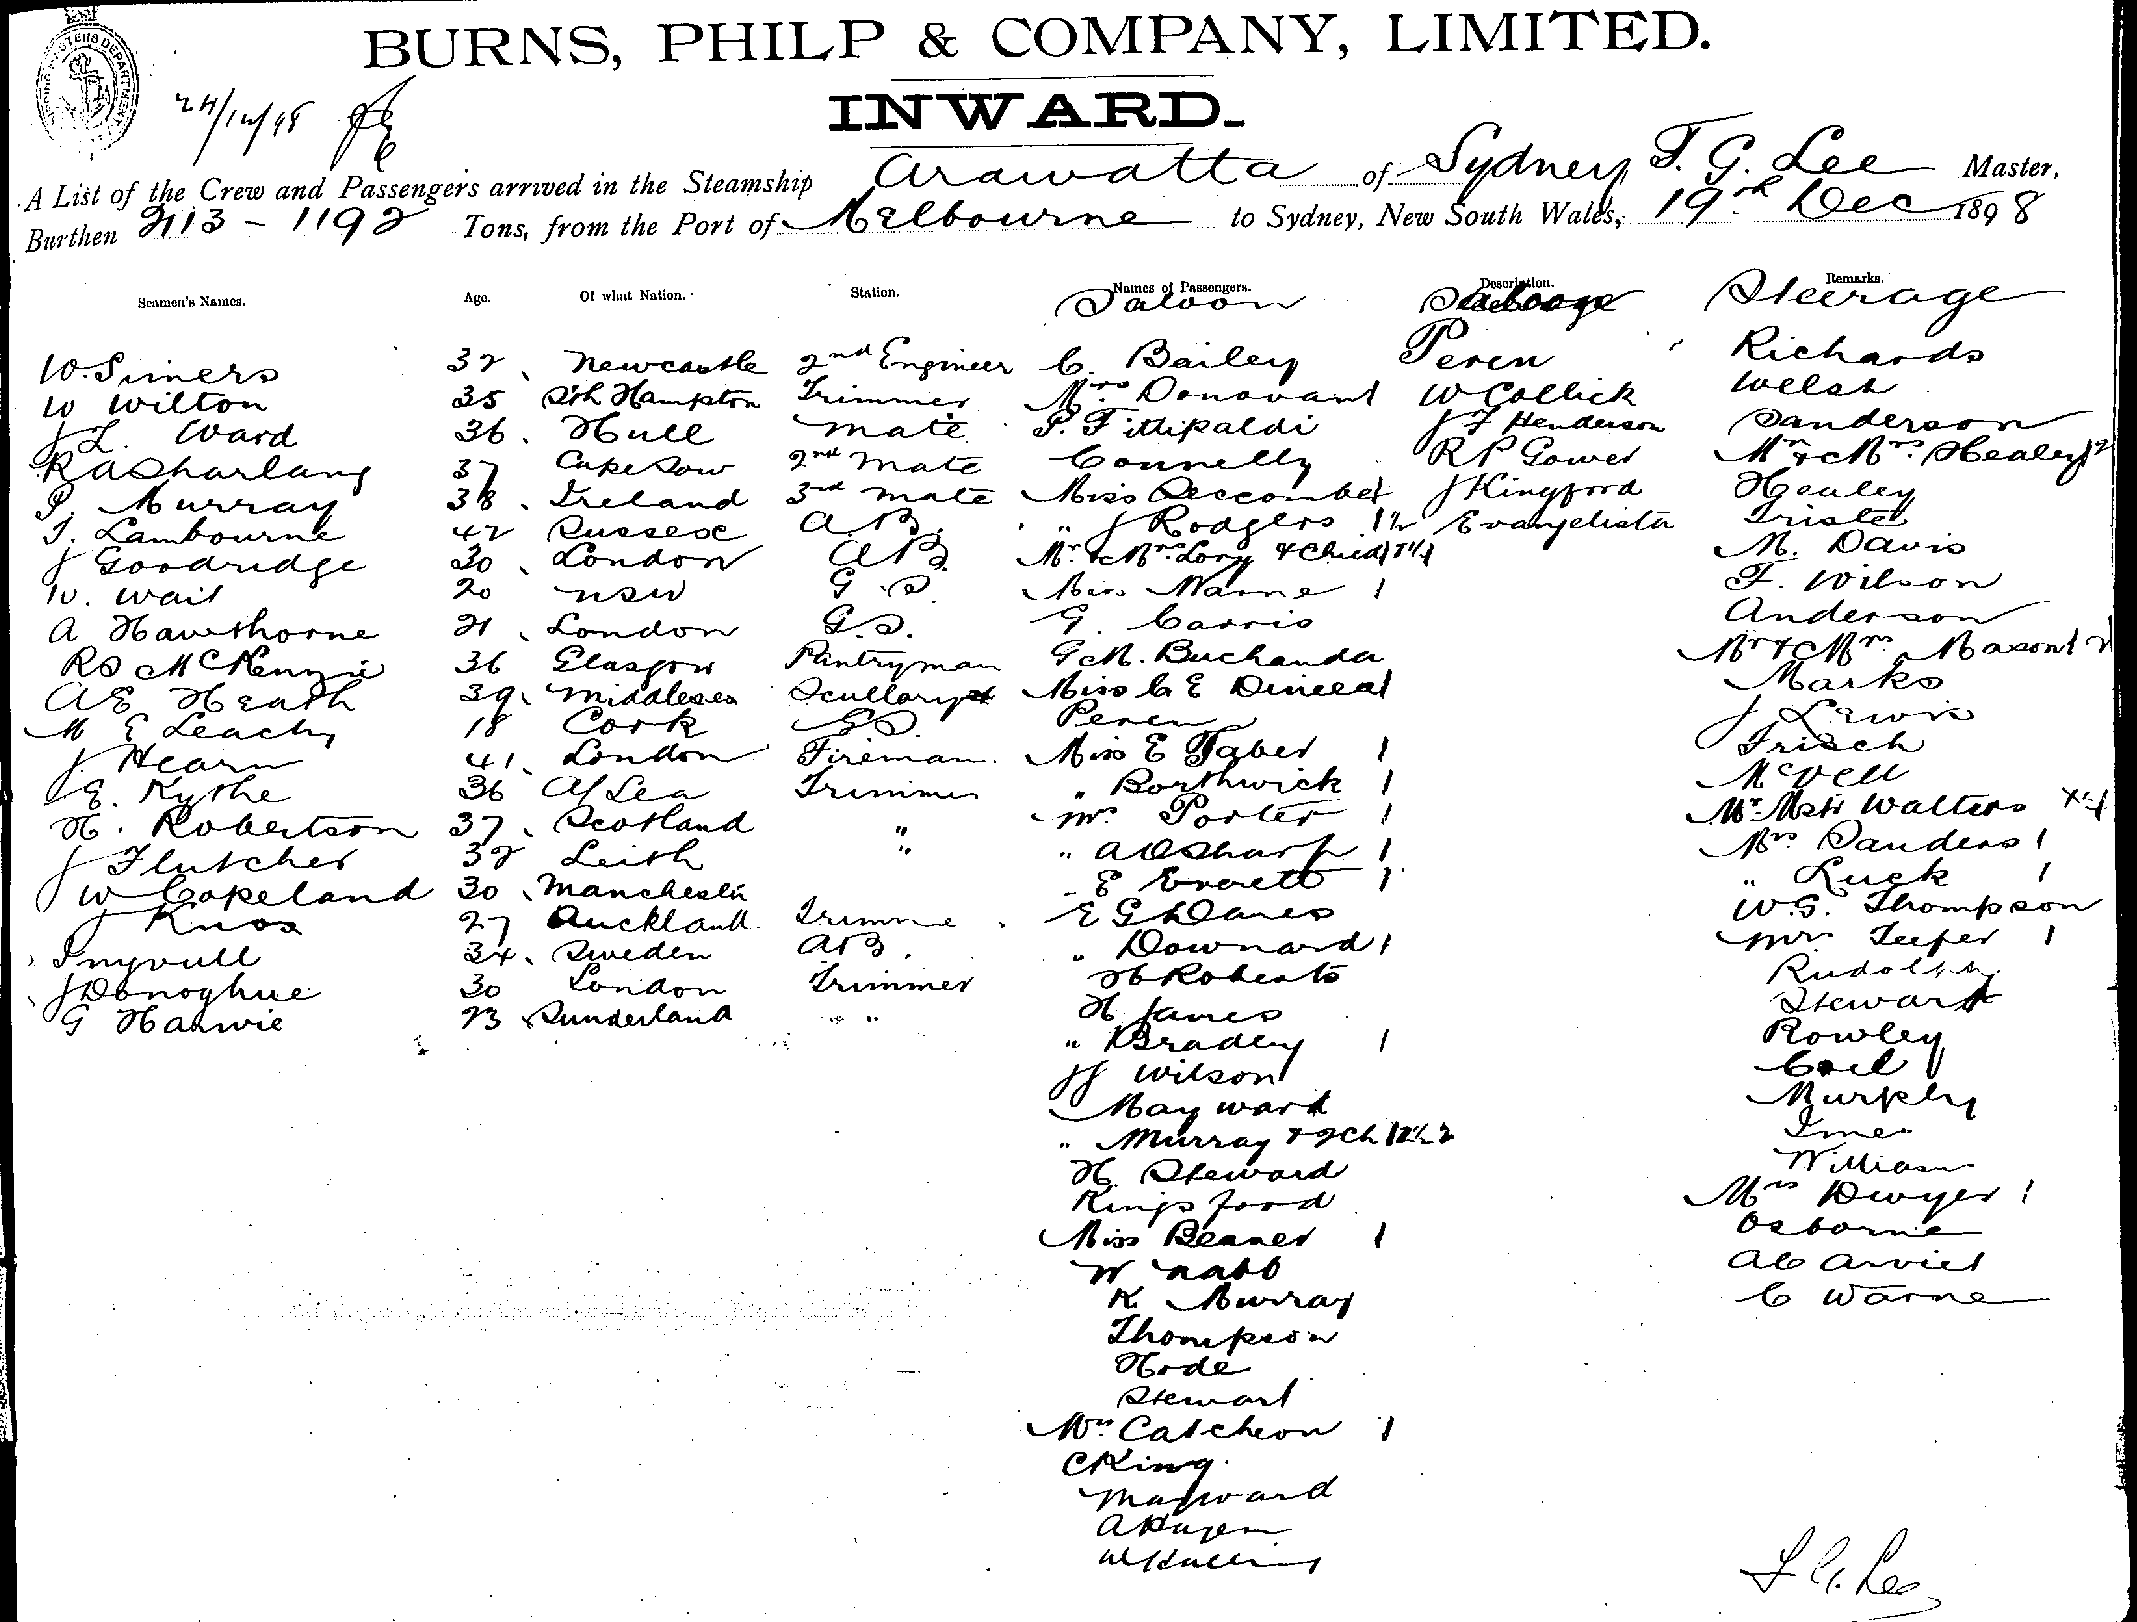 BURNS, PHILP & COMPANY, LIMITED.
INWARD.
A List of the Crew and Passengers arrived in the Steamship Arawatta of Sydney T. G. Lee Master,
Burthen 2113 - 1192 Tons, from the Port of Melbourne to Sydney, New South Wales, 19th Dec 1898
Seamen's Names. Age. Of what Nation. Station. Names of Passengers. Description. Remarks.
Saloon Steerage
W. Simers 32 Newcastle 2nd Engineer C. Bailey Peren Richards
W Wilton 35 Sth Hampton Trimmer Mrs Donovan 1 W Collick Welsh
J L. Ward 36 Hull Mate P. Fittipaldi J F Henderson Sanderson
37 Cape Town 2nd Mate Connelly R P Gower Mr & Mrs Healey
P. Murray 38 Ireland 3rd Mate Miss Seccombe 1 J Kingford Healey
T. Lambourne 42 Sussex A.B. " J Rodgers Evangelista
J Goodridge 30 London AB Mr & Mrs Lory & Child M. Davis
W. Wait 20 NSW G.S. Miss Warne 1 F. Wilson
A Hawthorne 21 London G.S. G. Carris Anderson
RS McKenzie 36 Glasgow Pantryman G M. Buchanan Mr & Mrs Mason
AE Heath 39 Middlesex Miss C E 1 Marks
M E Leachy 18 Cork G.S. Peren J Lewis
J. Hearn 41 London Fireman Miss E Faber 1 Frisch
E. Kythe 36 At Sea Trimmer " Borthwick 1
H. Robertson 37 Scotland " Mrs Porter 1 Walters
J Flutcher 32 Leith " " A O Sharp 1 Mrs Sanders 1
J W Copeland 30 Manchester E Everett 1 " Luck 1
J Knox 27 Auckland Trimmer E G Danes W.G. Thompson
Ingvull 34 Sweden AB. " Downard 1 Mrs Teefer 1
J Donoghue 30 London Trimmer H Roberts Rudolph
G Harwie 23 Sunderland " " H James Stewart
" Bradley 1 Rowley
J J Wilson
Mayward Murphy
" Murray & 2 Ch
H Steward William
Kingsford Mrs Dwyer 1
Miss Beaner 1 Osborne
W Nabb
K Murray C Warne
Thompson
Hode
Stewart
Mrs Catcheon 1
C King
Mayward
T G. Lee